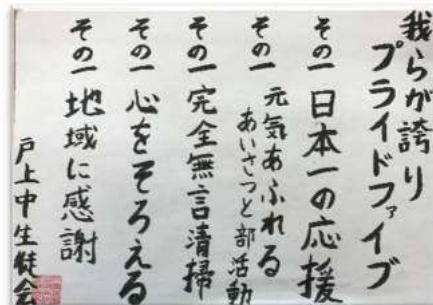 我らが誇り
プライドファイブ
その一 日本一の応援
その一 元気あふれる
あいさつと部活動
その一 完全無言清掃
その一 心をそろえる
その一 地域に感謝
戸上中生徒会